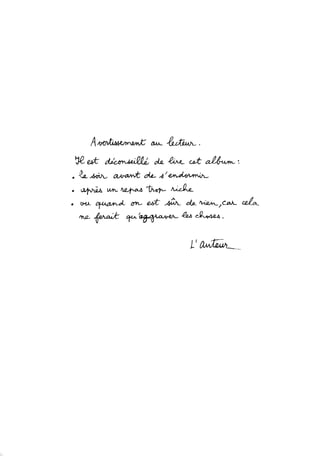 Avertissement au lecteur.
Il est déconseillé de lire cet album :
• le soir avant de s'endormir
• après un repas trop riche
• ou quand on est sûr de rien, car cela
ne ferait qu'aggraver les choses.
L'auteur